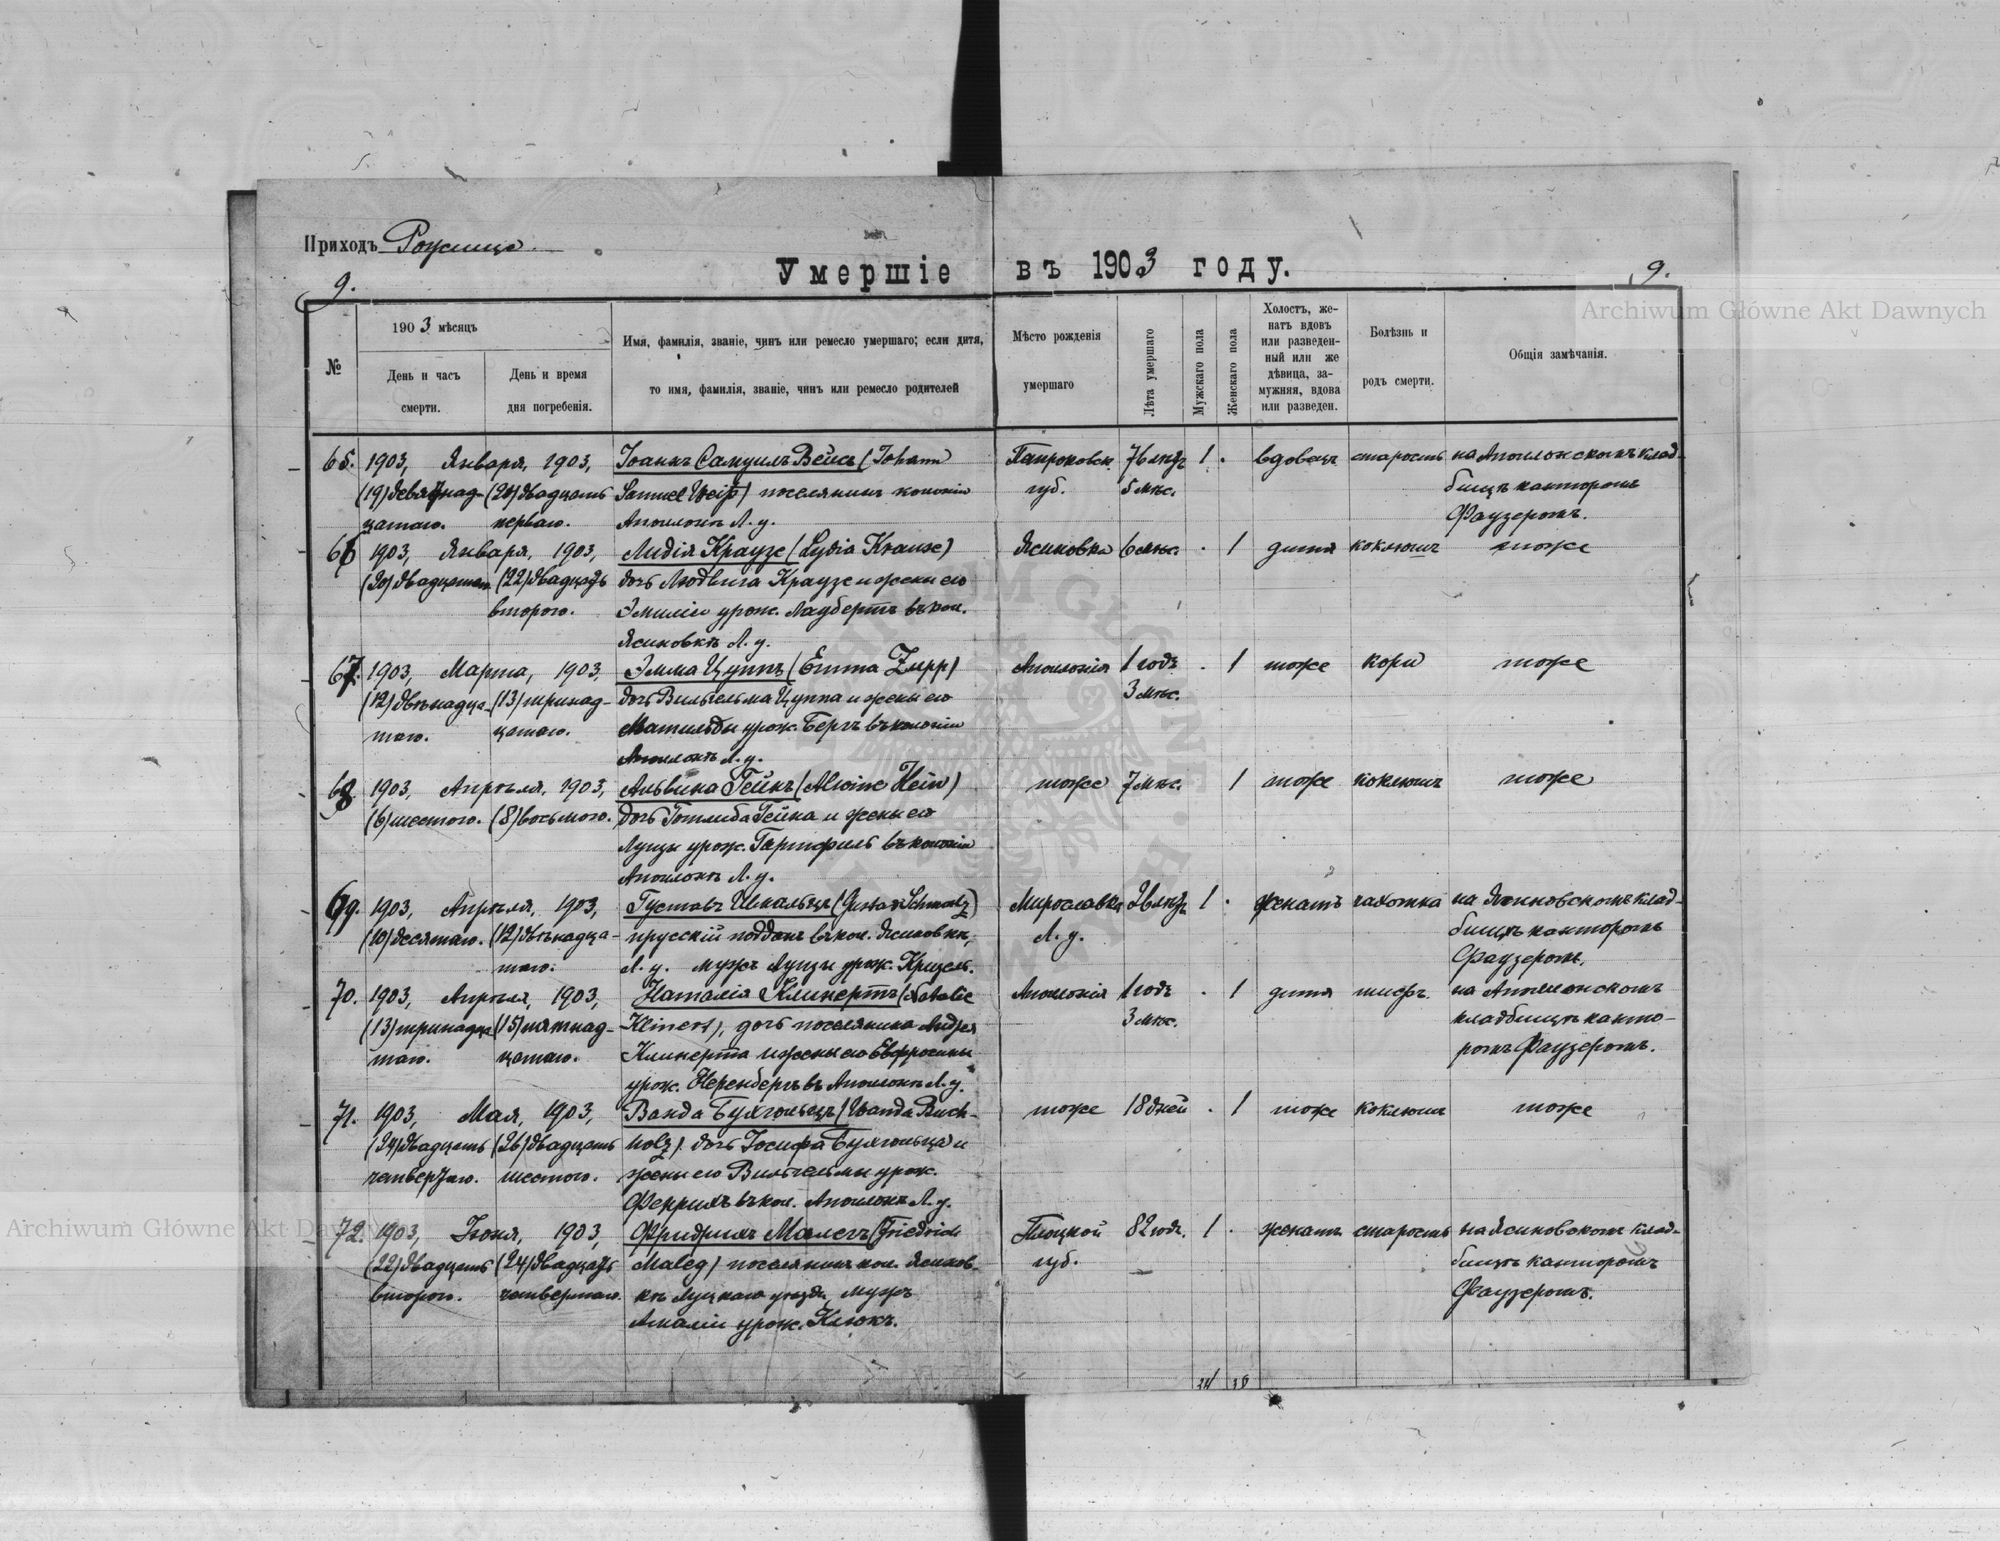 Приходъ Рожище
Умершіе въ 1903 году.
9. 9.
Archiwum Główne Akt Dawnych
№
1903 мѣсяцъ
День и часъ смерти.
День и время дня погребенія.
Имя, фамилія, званіе, чинъ или ремесло умершаго; если дитя,
то имя, фамилія, званіе, чинъ или ремесло родителей
Мѣсто рожденія
умершаго
Лѣта умершаго
Мужскаго пола
Женскаго пола
Холостъ, же-
натъ вдовъ
или разведен-
ный или же
дѣвица, за-
мужняя, вдова
или разведен.
Болѣзнь и
родъ смерти.
Общія замѣчанія.
65. 1903, Января, 1903, Іоаннъ Самуилъ Вейсъ (Johann губ. 76 лѣтъ 1 . вдовецъ старость на Аполонскомъ клад-
(19) девятнад- (21) двадцать Samuel Weiß) поселянинъ колоніи 5 мѣс. бищѣ канторомъ
цатаго. перваго. Аполонъ Л. у. Фаузеромъ.
66 1903, Января, 1903, Лидія Краузе (Lydia Krause) Ясиновка 6 мѣс. . 1 дитя коклюшъ тоже
(20) двадцатаго (22) двадцать дочь Людвига Краузе и жены его
второго. Эмиліи урож. Лаубертъ въ кол.
Ясиновкѣ Л. у.
67. 1903, Марта, 1903, Эмма Цуппъ (Emma Zupp) Аполонія 1 годъ . 1 тоже кори тоже
(12) двѣнадца- (13) тринад- дочь Вильгельма Цуппа и жены его 3 мѣс.
таго. цатаго. Матильды урож. Бергъ въ колоніи
Аполонѣ Л. у.
68 1903, Апрѣля, 1903, Альвина Гейнъ (Alwine Hein) тоже 7 мѣс. 1 тоже коклюшъ тоже
(6) шестого. (8) восьмого. дочь Готлиба Гейна и жены его
Луизы урож. Гартфиль въ колоніи
Аполонѣ Л. у.
69. 1903, Апрѣля, 1903, Густавъ Шмальцъ (Gustav Schmalz) Мирославка лѣтъ 1 . женатъ чахотка на Ясиновскомъ клад-
(10) десятаго. (12) двѣнадца- прусскій поддан. въ кол. Ясиновкѣ, Л. у. бищѣ канторомъ
таго. Л. у. мужъ Луизы урож. Фаузеромъ.
70. 1903, Апрѣля, 1903, Наталія Клинертъ (Natalie Аполонія 1 годъ . 1 дитя тифъ. на Аполонскомъ
(13) тринадца (15) пятнад- Kleinert), дочь поселянина Андрея 3 мѣс. кладбищѣ канто-
таго. цатаго. Клинерта и жены его Евфросины ромъ Фаузеромъ.
урож. Неренбергъ въ Аполонѣ Л. у.
71. 1903, Мая, 1903, Ванда Бухгольцъ (Wanda Buch- тоже 18 дней . 1 тоже коклюшъ тоже
(24) двадцать (26) двадцать holz) дочь Іосифа Бухгольца и
четвертаго. шестого. жены его Вильгельмы урож.
въ кол. Аполонѣ Л. у.
72. 1903, Іюня, 1903, Фридрихъ Малегъ (Friedrich Плоцкой 82 год. 1 . женатъ старость на Ясиновскомъ клад-
(22) двадцать (24) двадцать Maleg) поселянинъ кол. Ясинов- губ. бищѣ канторомъ
второго. четвертаго. кѣ Луцкаго уѣзда, мужъ Фаузеромъ.
Амаліи урож. Клюкъ.
Archiwum Główne Akt Dawnych